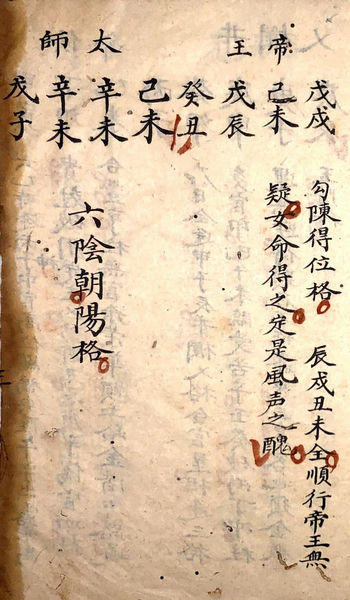 帝王
戊戌 勾陳得位格 辰戌丑未全順行帝王無
己未 疑女命得之定是風声之醜
戊辰
癸丑
太師
己未
辛未 六陰朝陽格
辛未
戊子